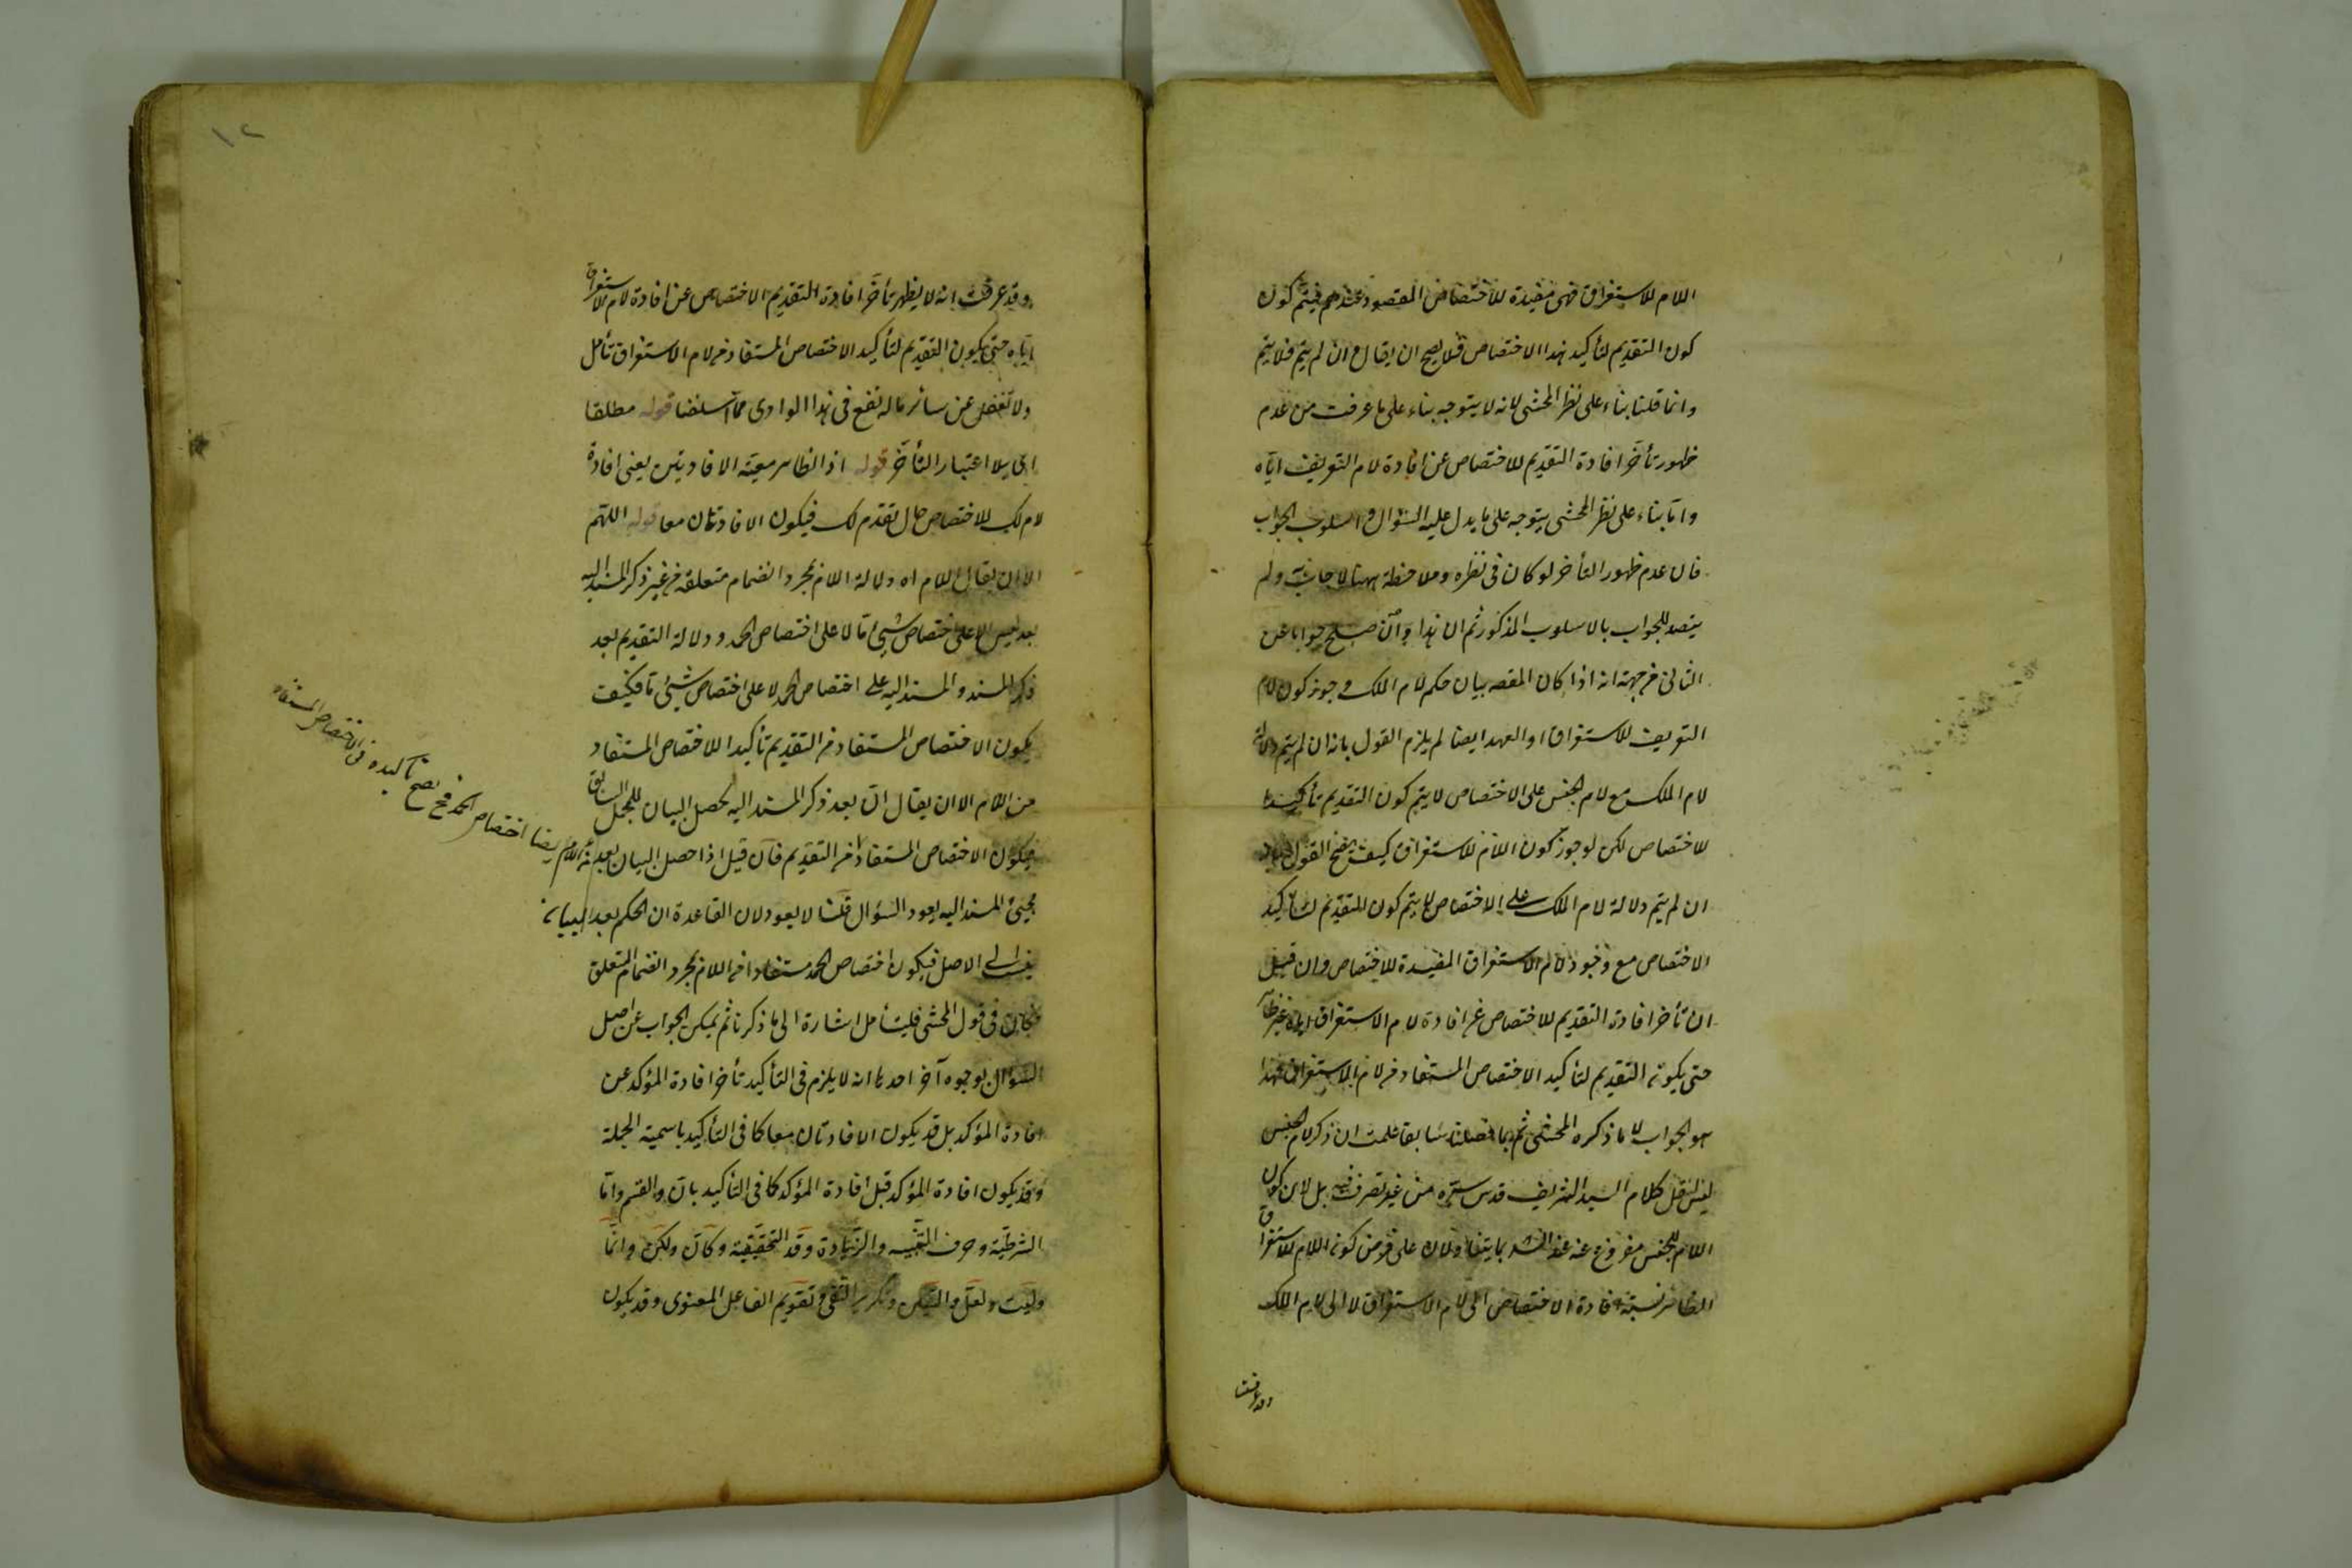 اللام للاستغراق فهى مفيدة للاختصاص المقصود عندهم فيتم كون
كون التقديم لتأكيد هذا الاختصاص فلا يصح ان يقال ان لم يتم فلا يتم
وانما قلنا بناء على نظر المحشى لانه لا يتوجه بناء على ما عرفت من عدم
ظهور تأخر افادة التقديم للاختصاص عن افادة لام التعريف اياه
واما بناء على نظر المحشى يتوجه على ما يدل عليه السؤال واسلوب الجواب
فان عدم ظهور التأخر لو كان فى نظره وملاحظة ههنا لاجاب به ولم
يتصد للجواب بالاسلوب المذكور ثم ان هذا وان صلح جوابا عن
الثانى من جهة انه اذا كان المقصد بيان حكم لام الملك وجوز كون لام
التعريف للاستغراق او العهد ايضا لم يلزم القول بانه ان لم يتم دلالة
لام الملك مع لام الجنس على الاختصاص لا يتم كون التقديم تأكيدا
للاختصاص لكن لو جوز كون اللام للاستغراق كيف يصح القول بانه
ان لم يتم دلالة لام الملك على الاختصاص لا يتم كون التقديم لتأكيد
الاختصاص مع وجود لام الاستغراق المفيدة للاختصاص وان قيل
ان تأخر افادة التقديم للاختصاص عن افادة لام الاستغراق اياه غير ظاهر
حتى يكون التقديم لتأكيد الاختصاص المستفاد من لام الاستغراق فهذا
هو الجواب لا ما ذكره المحشى ثم بما فصلنا سابقا علمت ان ذكر لام الجنس
ليس لنقل كلام السيد الشريف قدس سره من غير تصرف فيه بل لان كون
اللام للجنس مفروغ عنه عند ولان على فرض كون اللام للاستغراق
الظاهر نسبة افادة الاختصاص الى لام الاستغراق لا الى لام الملك
وقد عرفت
١٢
وقد عرفت انه لا يظهر تأخر افادة التقديم الاختصاص عن افادة لام الاستغراق
اياه حتى يكون التقديم لتأكيد الاختصاص المستفاد من لام الاستغراق تأمل
ولا تغفل عن سائر ما له نفع فى هذا الوادى مما اسلفنا قوله مطلقا
اى بلا اعتبار التأخر قوله اذ الظاهر معية الافادتين يعنى افادة
لام لك للاختصاص حال تقدم لك فيكون الافادتان معا قوله اللهم
الا ان يقال اللام اه دلالة اللام بمجرد انضمام متعلقه من غير ذكر المسند اليه
بعد ليس الا على اختصاص شىء ما لا على اختصاص الحمد ودلالة التقديم بعد
ذكر المسند والمسند اليه على اختصاص الحمد لا على اختصاص شىء ما فكيف
يكون الاختصاص المستفاد من التقديم تأكيدا للاختصاص المستفاد
من اللام الا ان يقال ان بعد ذكر المسند اليه حصل البيان للمجمل السابق
فيكون الاختصاص المستفاد من التقديم فان قيل اذا حصل البيان بعد
مجيئ المسند اليه يعود السؤال قلنا لا يعود لان القاعدة ان الحكم بعد البيان
ينسب الى الاصل فيكون اختصاص الحمد مستفادا من اللام بمجرد انضمام المتعلق
فكان فى قول المحشى فليتأمل اشارة الى ما ذكرنا ثم يمكن الجواب عن اصل
السؤال بوجوه آخر احدها انه لا يلزم فى التأكيد تأخر افادة المؤكد عن
افادة المؤكد بل قد يكون الافادتان معا كما فى التأكيد باسمية الجملة
وقد يكون افادة المؤكد قبل افادة المؤكد كما فى التأكيد بان والقسم واما
الشرطية وحرف التنبيه والزيادة وقد التحقيقية وكأن ولكن وانما
وليت ولعل والسين وتكرير النفى وتقويم الفاعل المعنوى وقد يكون
من اللام ايضا اختصاص الحمد فح يصح تأكيده فى الاختصاص المستفاد